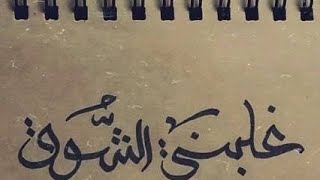 غلبني الشُّوق